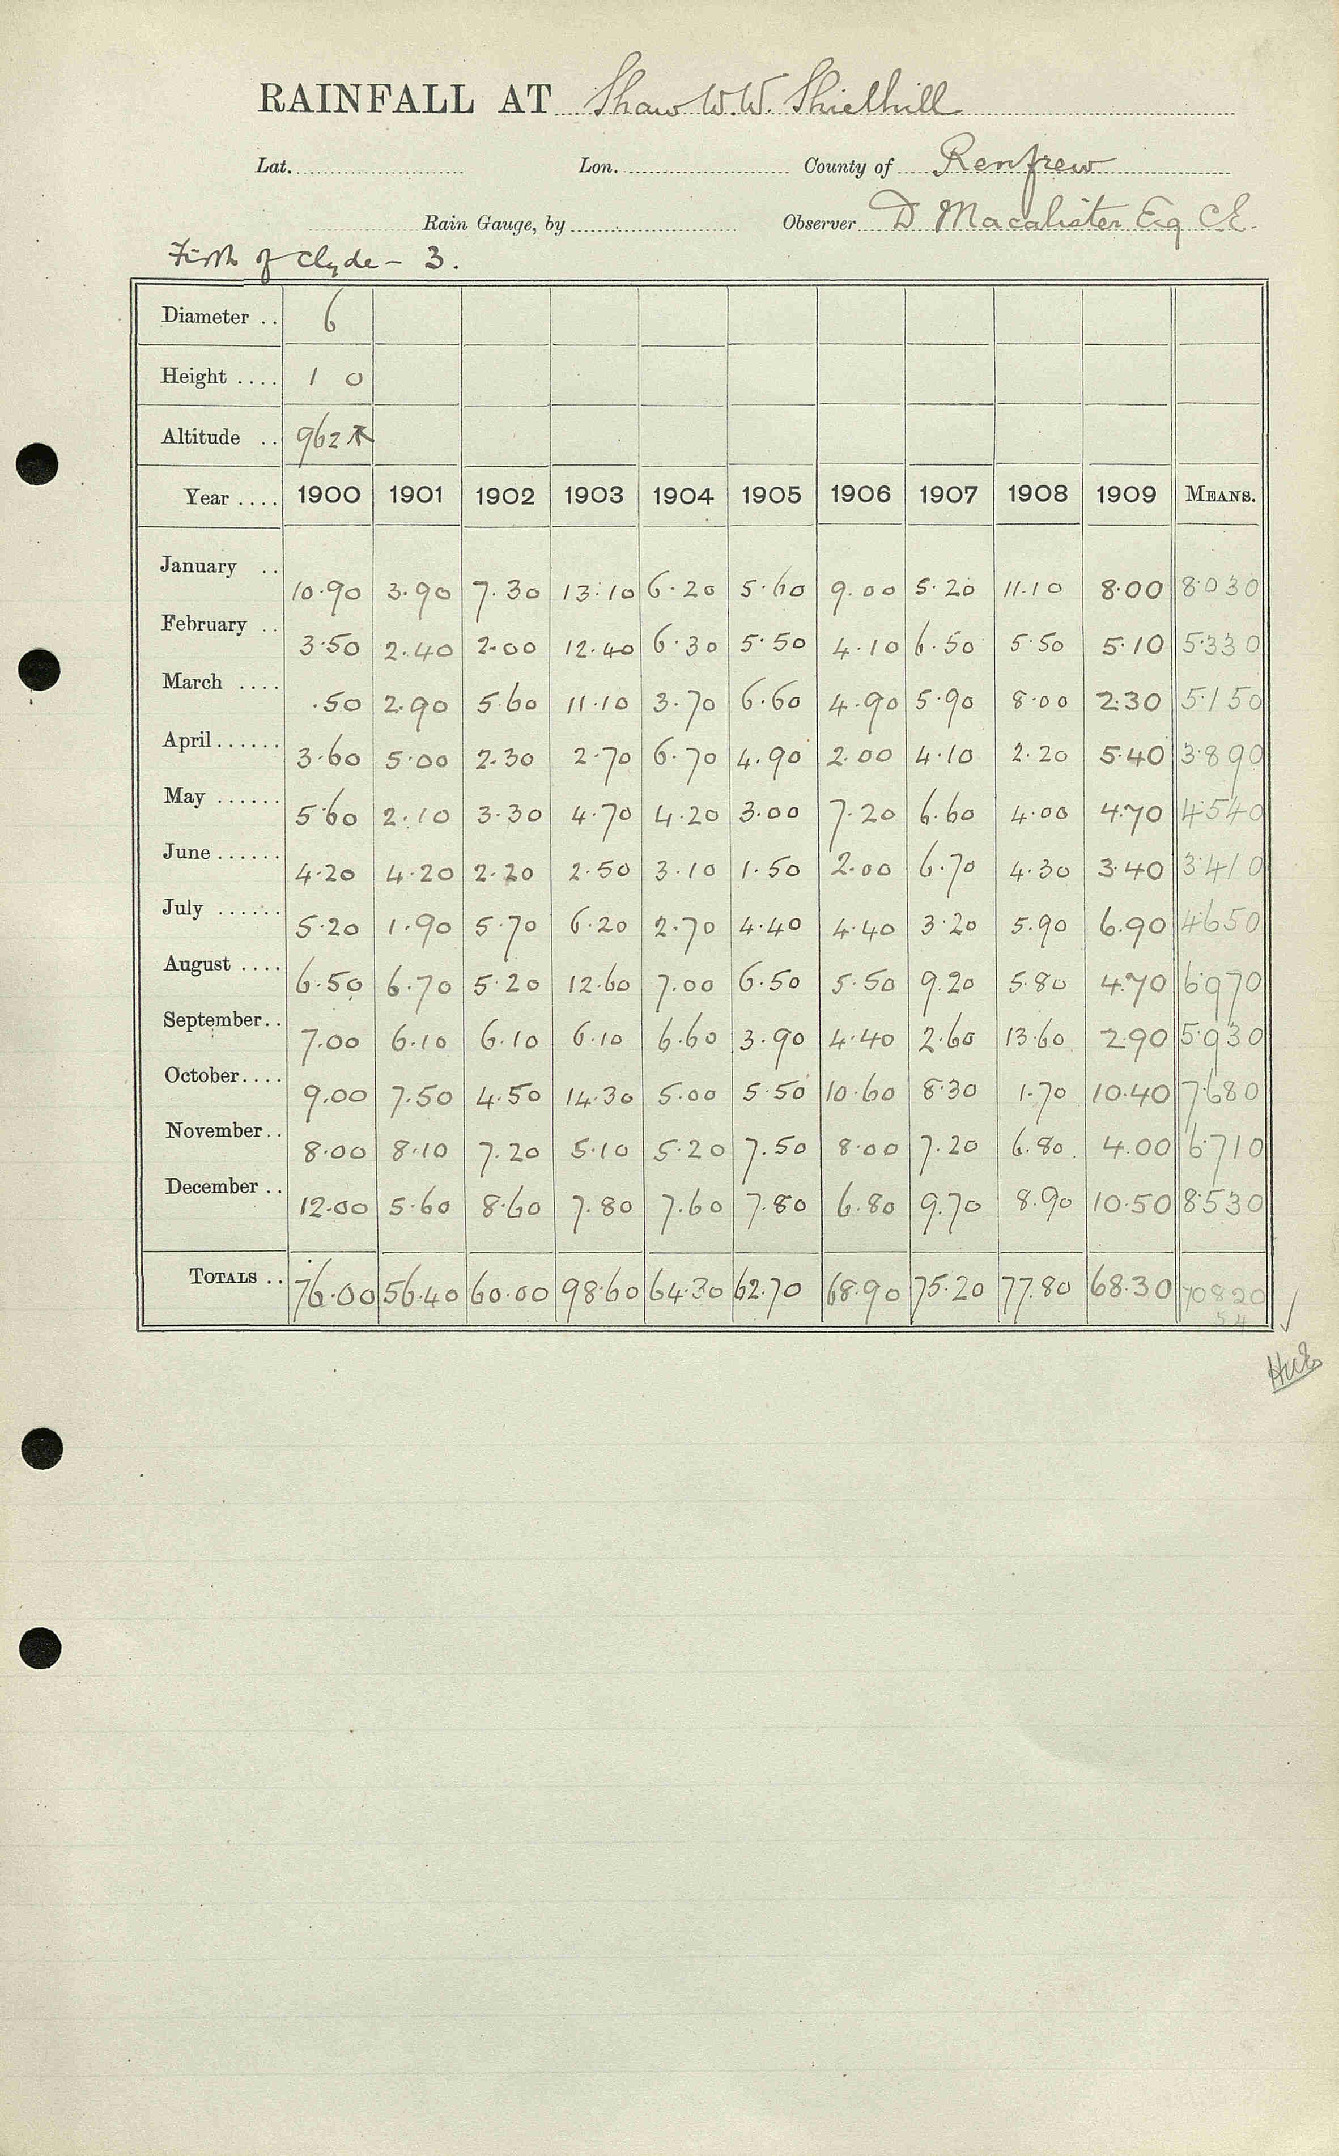 RAINFALL AT Shaw W.W. Shielhill
Lat. Lon. County of Renfrew
Rain Gauge, by Observer D Macalister Esq CE.
Firth of Clyde - 3.
Diameter .. 6
Height .... 1 0
Altitude .. 962
Year .... 1900 1901 1902 1903 1904 1905 1906 1907 1908 1909 MEANS.
January .. 10.90 3.90 7.30 13.10 6.20 5.60 9.00 5.20 11.10 8.00 8.030
February .. 3.50 2.40 2.00 12.40 6.30 5.50 4.10 6.50 5.50 5.10 5.330
March .... .50 2.90 5.60 11.10 3.70 6.60 4.90 5.90 8.00 2.30 5.150
April ...... 3.60 5.00 2.30 2.70 6.70 4.90 2.00 4.10 2.20 5.40 3.890
May ...... 5.60 2.10 3.30 4.70 4.20 3.00 7.20 6.60 4.00 4.70 4.540
June ...... 4.20 4.20 2.20 2.50 3.10 1.50 2.00 6.70 4.30 3.40 3.410
July ...... 5.20 1.90 5.70 6.20 2.70 4.40 4.40 3.20 5.90 6.90 4.650
August .... 6.50 6.70 5.20 12.60 7.00 6.50 5.50 9.20 5.80 4.70 6.970
September .. 7.00 6.10 6.10 6.10 6.60 3.90 4.40 2.60 13.60 2.90 5.930
October .... 9.00 7.50 4.50 14.30 5.00 5.50 10.60 8.30 1.70 10.40 7.680
November .. 8.00 8.10 7.20 5.10 5.20 7.50 8.00 7.20 6.80 4.00 6.710
December .. 12.00 5.60 8.60 7.80 7.60 7.80 6.80 9.70 8.90 10.50 8.530
TOTALS .. 76.00 56.40 60.00 98.60 64.30 62.70 68.90 75.20 77.80 68.30 70820
54